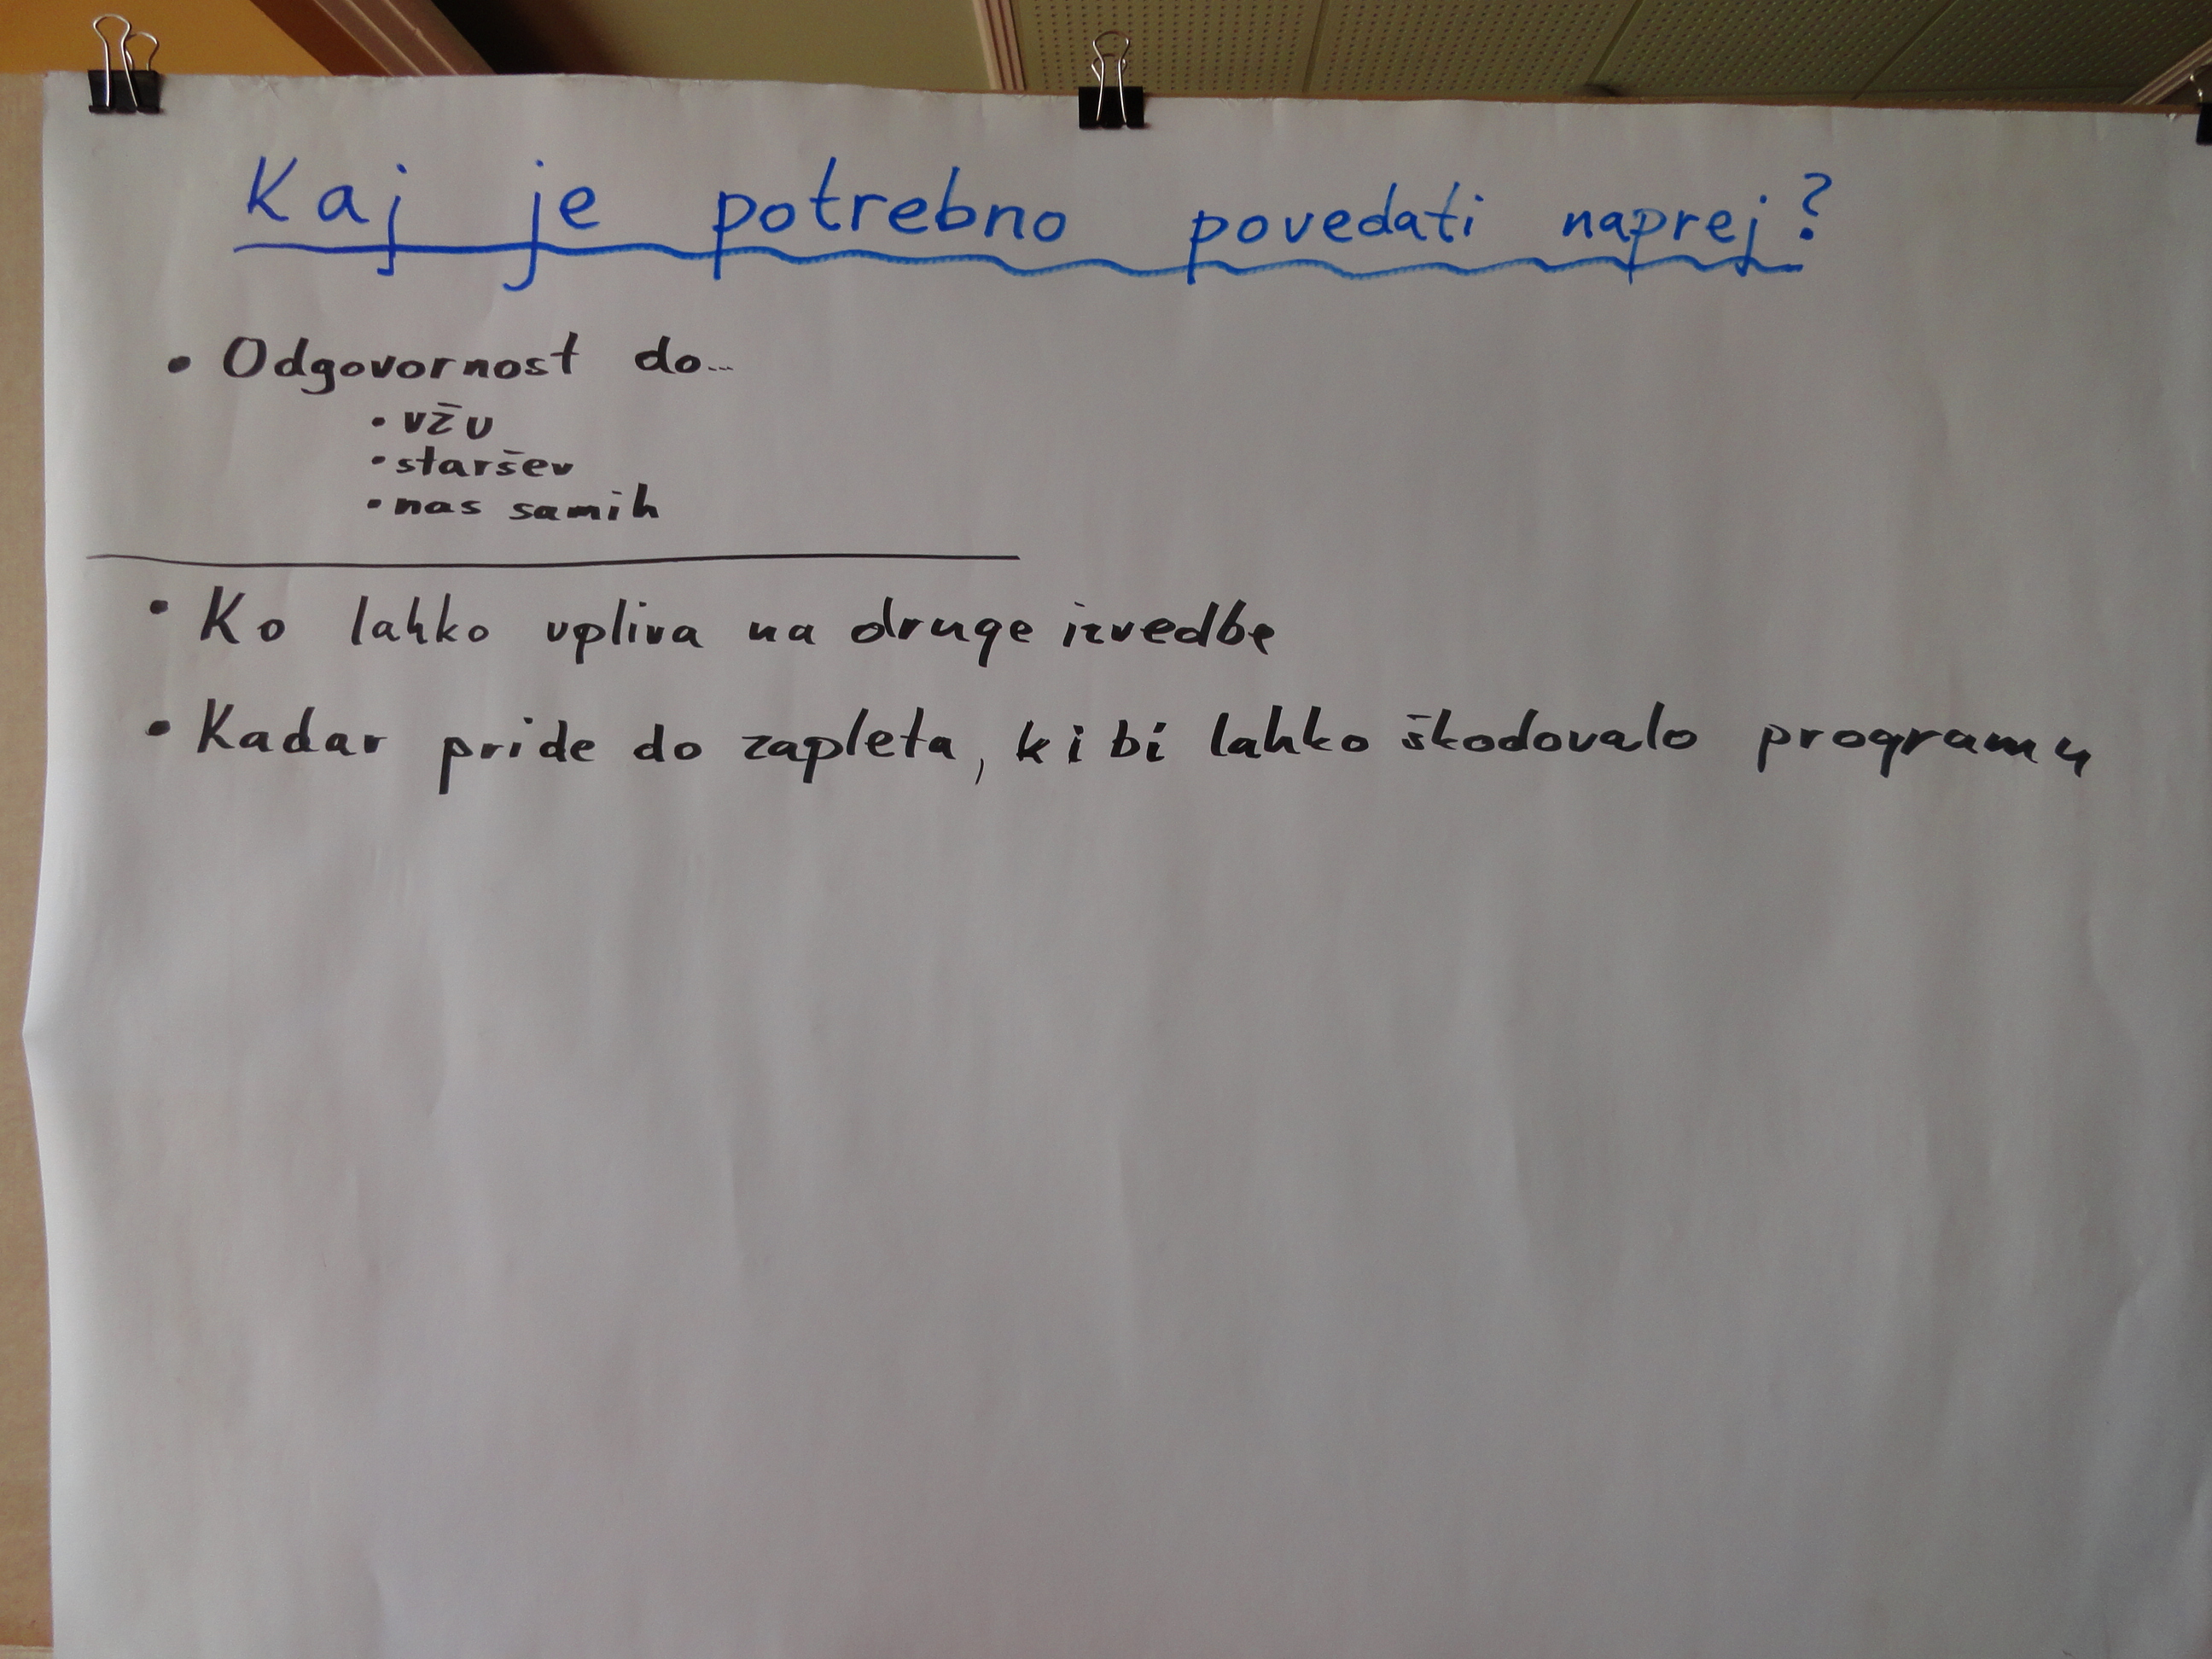 Kaj je potrebno povedati naprej?
• Odgovornost do...
• VŽU
• staršev
• nas samih
• Ko lahko vpliva na druge izvedbe
• Kadar pride do zapleta, ki bi lahko škodovalo programu